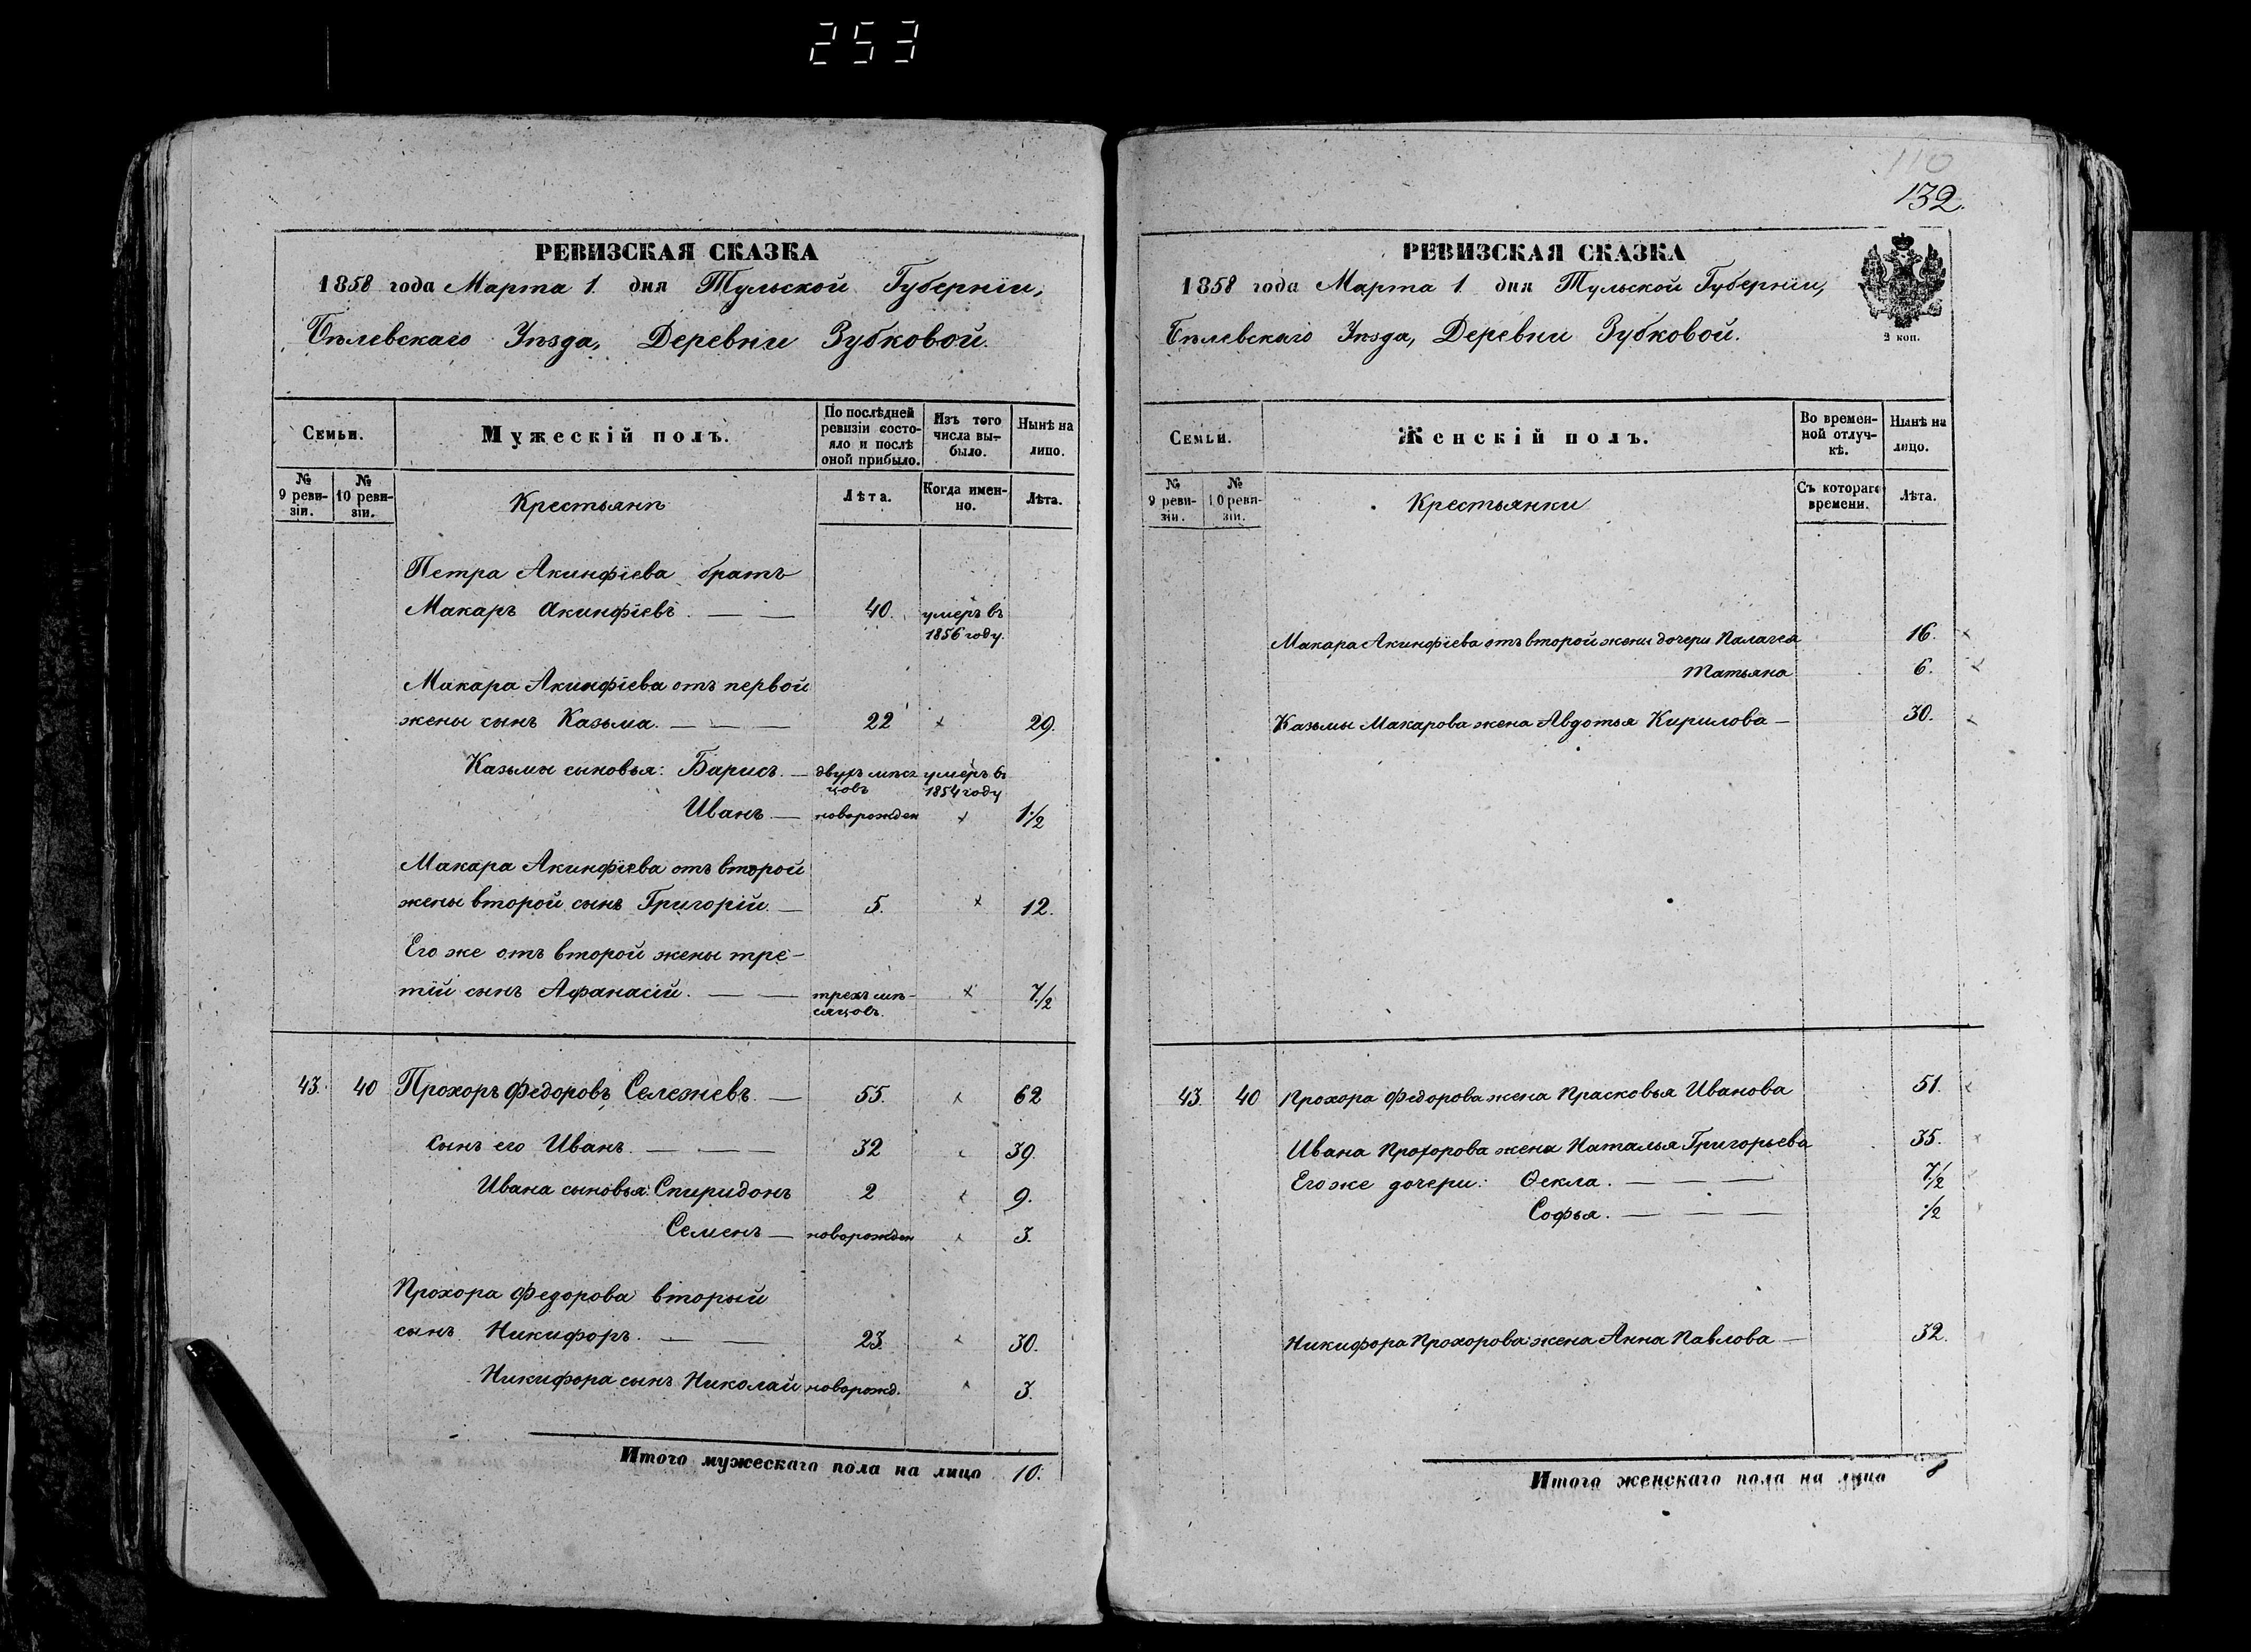 253
РЕВИЗСКАЯ СКАЗКА
1858 года Марта 1. дня Тульской Губерніи,
Бѣлевскаго Уѣзда, Деревни Зубковой.
Семьи.
Мужескій полъ.
По послѣдней ревизіи состояло и послѣ оной прибыло.
Изъ того числа выбыло.
Нынѣ на лицо.
№ 9 ревизіи.
№ 10 ревизіи.
Крестьянъ
Лѣта.
Когда именно.
Лѣта.
Петра Акинфіева братъ
Макаръ Акинфіевъ. — — 40. умеръ въ 1856 году.
Макара Акинфіева отъ первой
жены сынъ Казьма. — — — 22 × 29.
Казьмы сыновья: Барисъ. — двухъ мѣсяцовъ умеръ въ 1854 году
Иванъ — новорожден × 1½
Макара Акинфіева отъ второй
жены второй сынъ Григорій. — 5. × 12.
Его же отъ второй жены тре-
тій сынъ Афанасій. — — трехъ мѣ-сяцовъ. × 7½
43. 40 Прохоръ Федоровъ Селезневъ. — 55. × 62
Сынъ его Иванъ. — — — 32 × 39.
Ивана сыновья: Спиридонъ 2 × 9.
Семенъ — новорожден × 3.
Прохора Федорова вторый
сынъ Никифоръ. — — 23. × 30.
Никифора сынъ Николай новорожд. × 3.
Итого мужескаго пола на лицо 10.
110
132.
РЕВИЗСКАЯ СКАЗКА
1858 года Марта 1 дня Тульской Губерніи,
Бѣлевскаго Уѣзда, Деревни Зубковой.
2 коп.
Семьи.
Женскій полъ.
Во временной отлучкѣ.
Нынѣ на лицо.
№ 9 ревизіи.
№ 10 ревизіи.
Крестьянки
Съ котораго времени.
Лѣта.
Макара Акинфіева отъ второй жены дочери Палагея 16. ×
Татьяна 6. ×
Казьмы Макарова жена Авдотья Кирилова — 30. ×
43. 40 Прохора Федорова жена Прасковья Иванова 51. ×
Ивана Прохорова жена Наталья Григорьева 35. ×
Его же дочери: Ѳекла. — — — 7½ ×
Софья. — — — ½ ×
Никифора Прохорова жена Анна Павлова — 32.
Итого женскаго пола на лицо 8